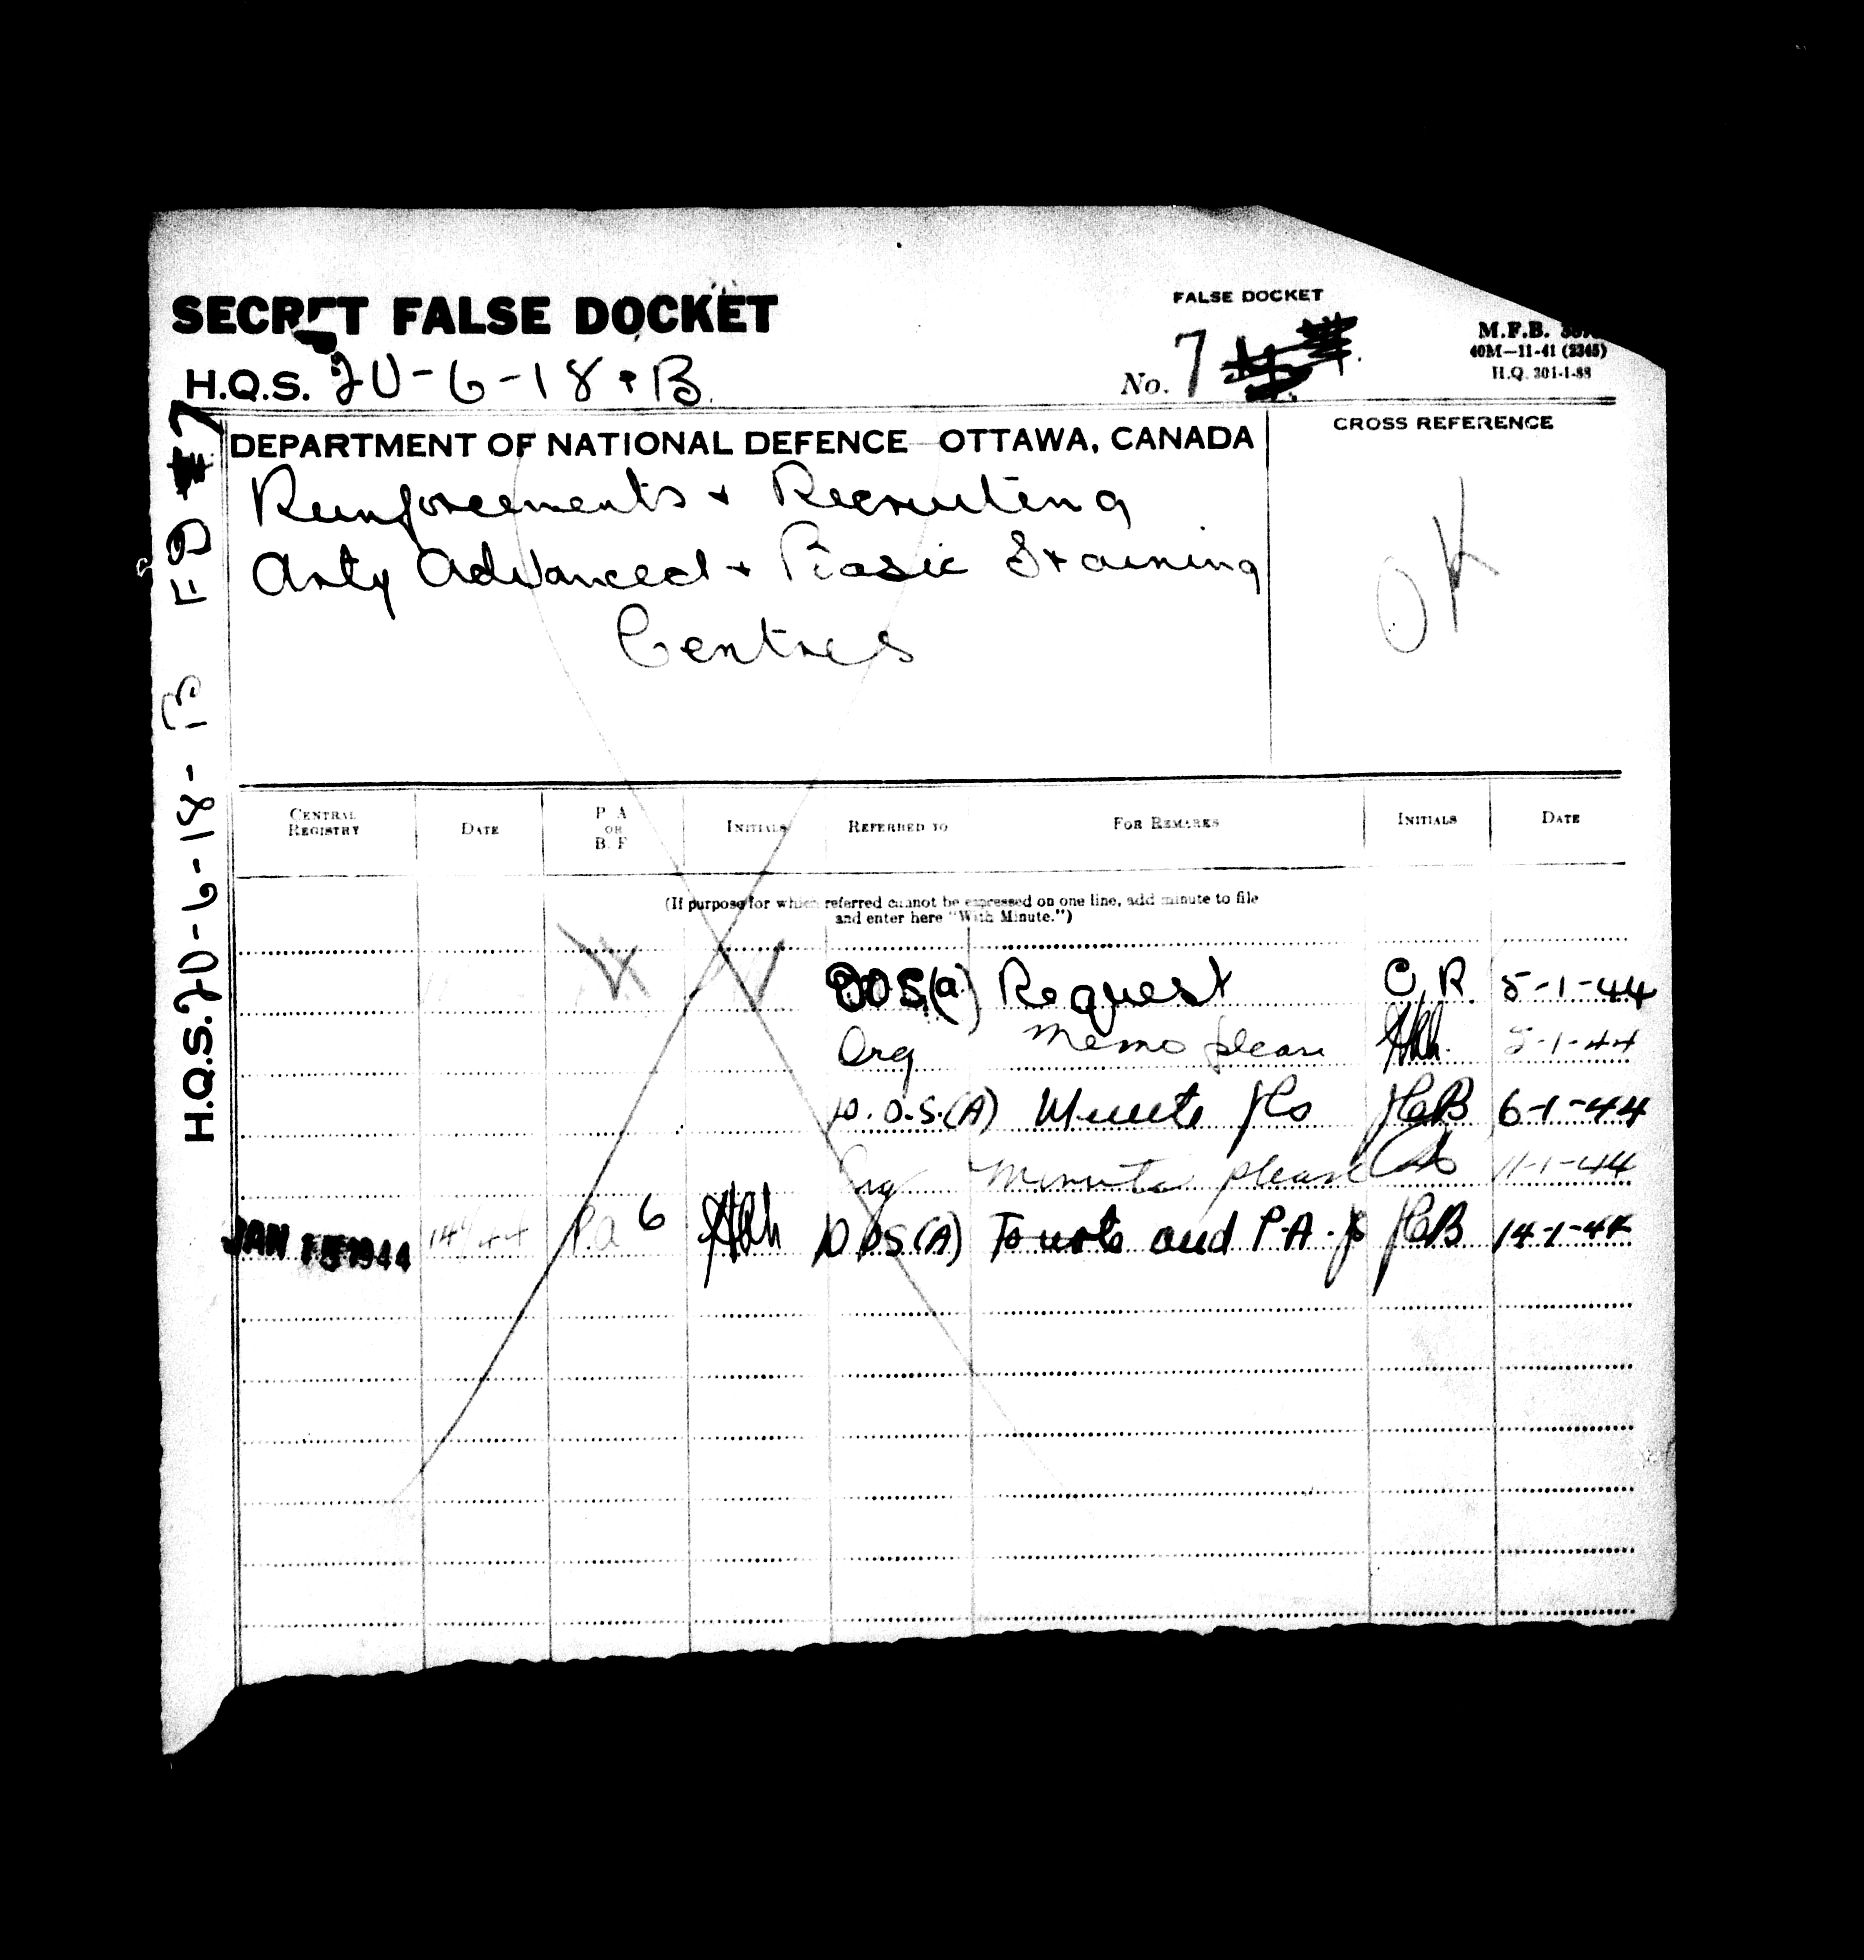 SECRET FALSE DOCKET
FALSE DOCKET
No. 7
M.F.B.
40M—11-41 (2345)
H.Q. 301-1-88
H.Q.S. 20-6-18 · B.
DEPARTMENT OF NATIONAL DEFENCE—OTTAWA, CANADA
CROSS REFERENCE
Reinforcements + Recruiting
Arty Advanced + Basic Training
Centres
OK
H.Q.S. 20-6-18-B FD 7
CENTRAL REGISTRY DATE P. A OR B. F INITIALS REFERRED TO FOR REMARKS INITIALS DATE
(If purpose for which referred cannot be expressed on one line, add minute to file
and enter here "With Minute.")
DOS(a) Request C.R. 5-1-44
Org Memo please 5-1-44
D.O.S.(A) Minute HCB 6-1-44
Org Minute please 11-1-44
JAN 15 1944 P.a 6 DOS(A) To note and P.A. HCB 14-1-44